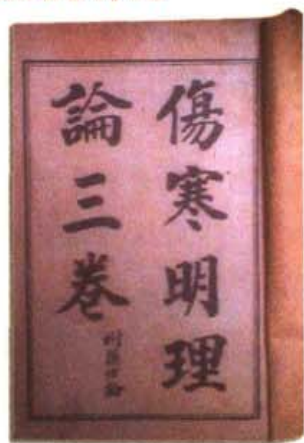 傷寒明理
論三卷